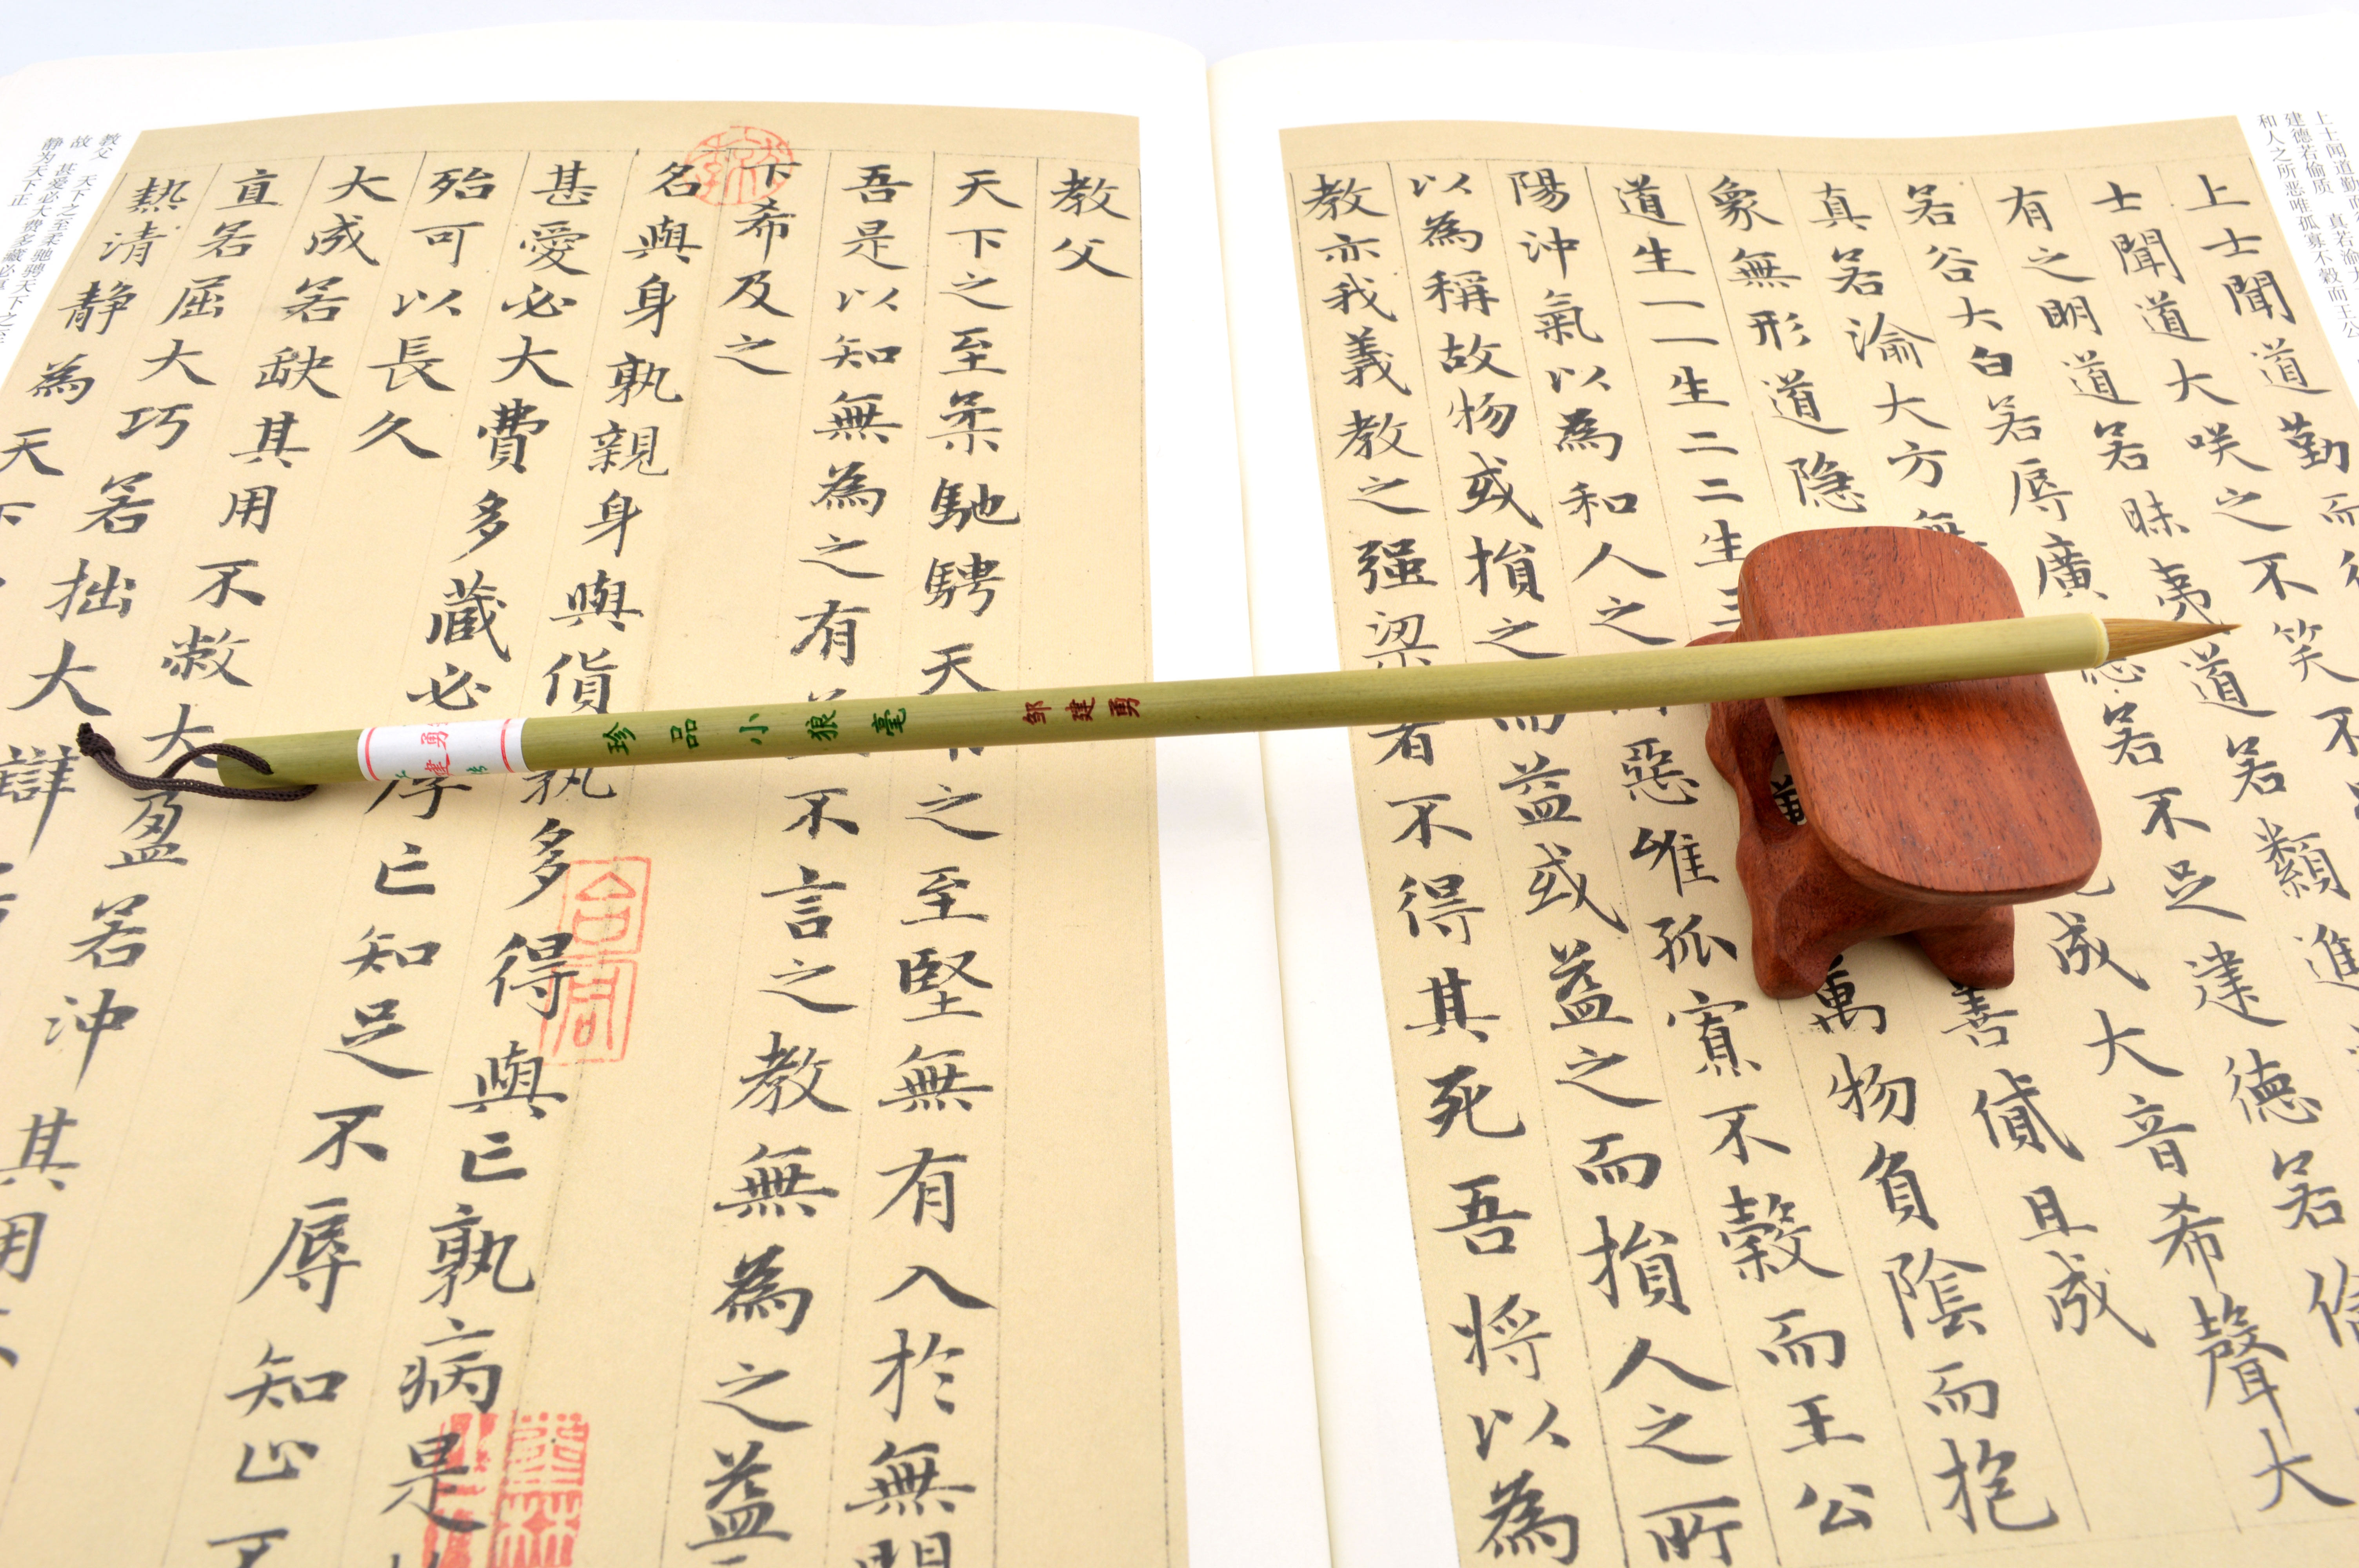 上士闻道勤而
建德若偷质 真若渝大
和人之所恶唯孤寡不榖而王公
上士聞道勤而
士聞道大咲之不笑不
有之明道若昧夷道若纇進
若谷大白若辱廣德若不足建德若偷
真若渝大方無成大音希聲大
象無形道隐善貸且成
道生一一生二二生三萬物負陰而抱
陽沖氣以為和人之惡唯孤寡不穀而王公
以為稱故物或損之而益或益之而損人之所
教亦我義教之强梁者不得其死吾将以為
教父
天下之至柔馳騁天下之至堅無有入於無間
吾是以知無為之有益不言之教無為之益
下希及之
名與身孰親身與貨孰多得與亡孰病是
甚愛必大費多藏必厚亡知足不辱知止不
殆可以長久
大成若缺其用不敝大盈若沖其用
直若屈大巧若拙大辯
熱清静為天下
教父 天下之至柔驰骋天下之至
故 甚爱必大费多藏必厚
静为天下正
珍品小狼毫 邹建勇